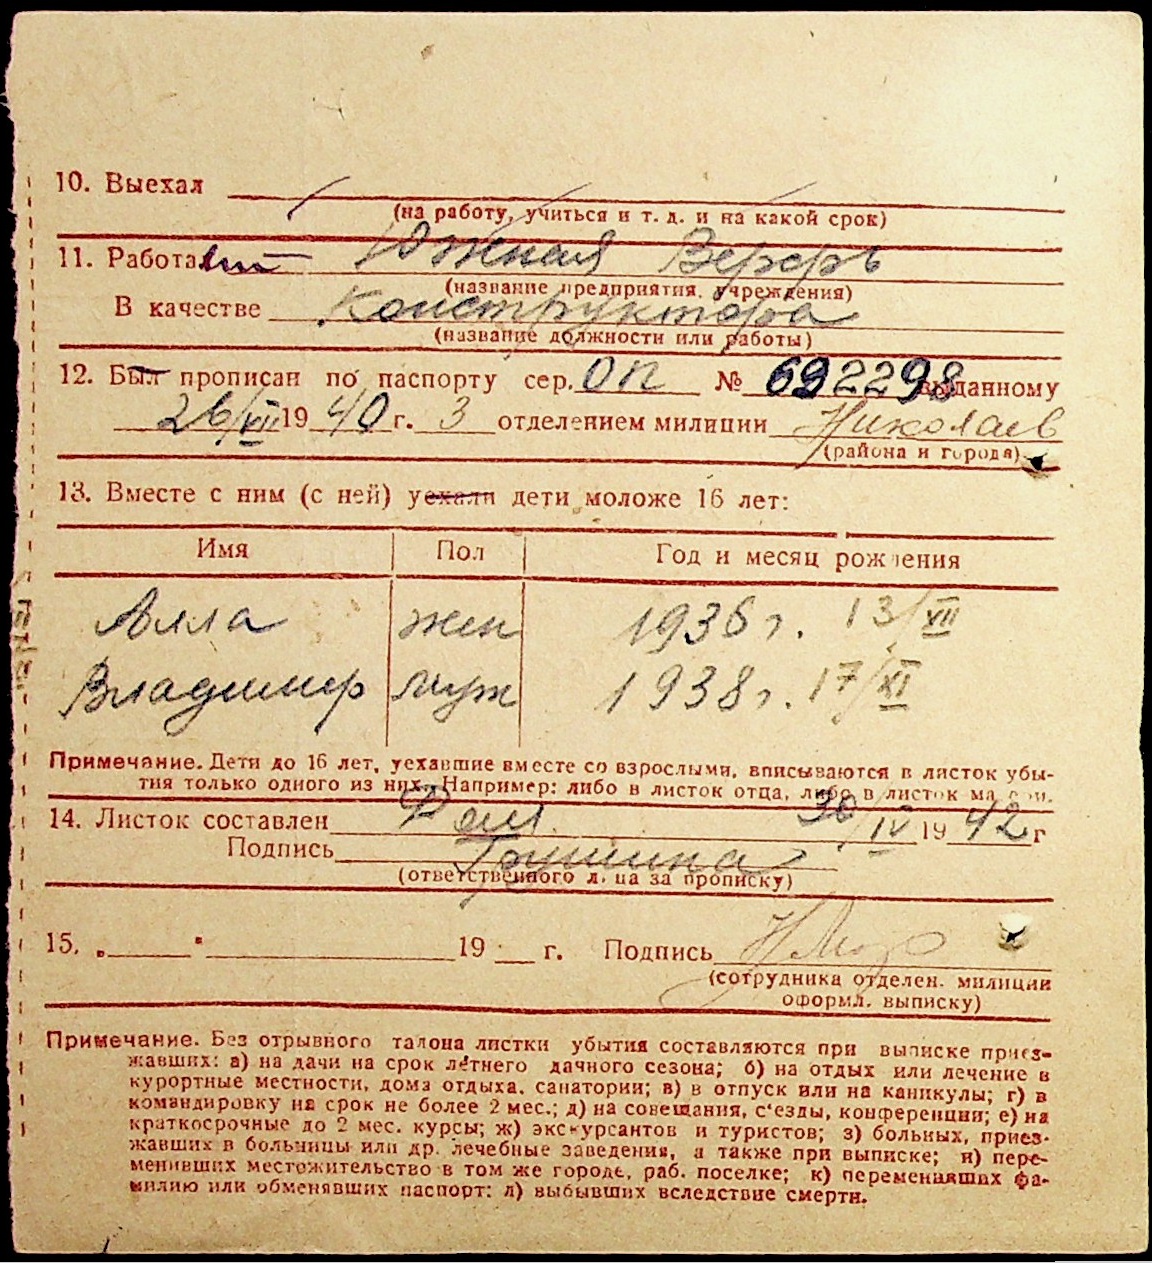 10. Выехал
(на работу, учиться и т. д. и на какой срок)
11. Работает Южная Верфь
(название предприятия, учреждения)
В качестве Конструктора
(название должности или работы)
12. Был прописан по паспорту сер. ОП № 692298 выданному
26/VII 1940 г. 3 отделением милиции Николаев
(района и города)
13. Вместе с ним (с ней) уехали дети моложе 16 лет:
Имя Пол Год и месяц рождения
Алла жен 1936 г. 13/VII
Владимир муж 1938 г. 17/XI
Примечание. Дети до 16 лет, уехавшие вместе со взрослыми, вписываются в листок убы-
тия только одного из них. Например: либо в листок отца, либо в листок матери.
14. Листок составлен 30/IV 1942 г
Подпись Грушина
(ответственного лица за прописку)
15. „ " 19 г. Подпись
(сотрудника отделен. милиции
оформл. выписку)
Примечание. Без отрывного талона листки убытия составляются при выписке приез-
жавших: а) на дачи на срок летнего дачного сезона; б) на отдых или лечение в
курортные местности, дома отдыха, санатории; в) в отпуск или на каникулы; г) в
командировку на срок не более 2 мес.; д) на совещания, с'езды, конференции; е) на
краткосрочные до 2 мес. курсы; ж) экскурсантов и туристов; з) больных, приез-
жавших в больницы или др. лечебные заведения, а также при выписке; и) пере-
менивших местожительство в том же городе, раб. поселке; к) переменивших фа-
милию или обменявших паспорт: л) выбывших вследствие смерти.